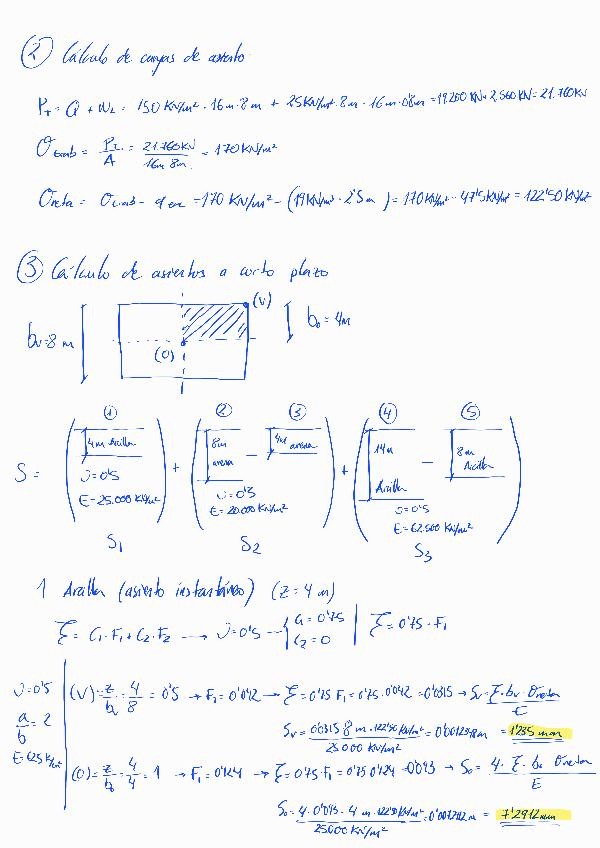 ② Cálculo de cargas de asiento
P_T = Q + W_L = 150 KN/m² · 16m · 8m + 25KN/m³ · 8m · 16m · 0'8m = 19.200 KN + 2.560 KN = 21.760 KN
σ_trab = P_T / A = 21.760KN / 16m · 8m = 170KN/m²
σ_neta = σ_trab - = 170 KN/m² - (19KN/m³ · 2'5m) = 170KN/m² - 47'5KN/m² = 122'50 KN/m²
③ Cálculo de asientos a corto plazo
(V)
b_V = 8 m
b_0 = 4m
(0)
① ② ③ ④ ⑤
S = (4m Arcilla υ = 0'5 E = 25.000 KN/m²) + (8m arena - 4m arena υ = 0'3 E = 20.000 KN/m²) + (14m Arcilla - 8m Arcilla υ = 0'5 E = 62.500 KN/m²)
S₁ S₂ S₃
1 Arcilla (asiento instantáneo) (z = 4 m)
ξ = C₁·F₁ + C₂·F₂ → υ = 0'5 → { C₁ = 0'75 C₂ = 0 | ξ = 0'75 · F₁
υ = 0'5
a/b = 2
(V) = z/b_V = 4/8 = 0'5 → F₁ = 0'042 → ξ = 0'75·F₁ = 0'75 · 0'042 = 0'0315 → S_V = ξ · b_V · σ_neta / E
S_V = 0'0315 · 8 m · 122'50 KN/m² / 25.000 KN/m² = 0'0012348m = 1'235 mm
(0) = z/b_0 = 4/4 = 1 → F₁ = 0'124 → ξ = 0'75 · F₁ = 0'75 · 0'124 = 0'093 → S_0 = 4 · ξ · b_0 · σ_neta / E
S_0 = 4 · 0'093 · 4 m · 122'50 KN/m² / 25.000 KN/m² = m = 7'2912 mm